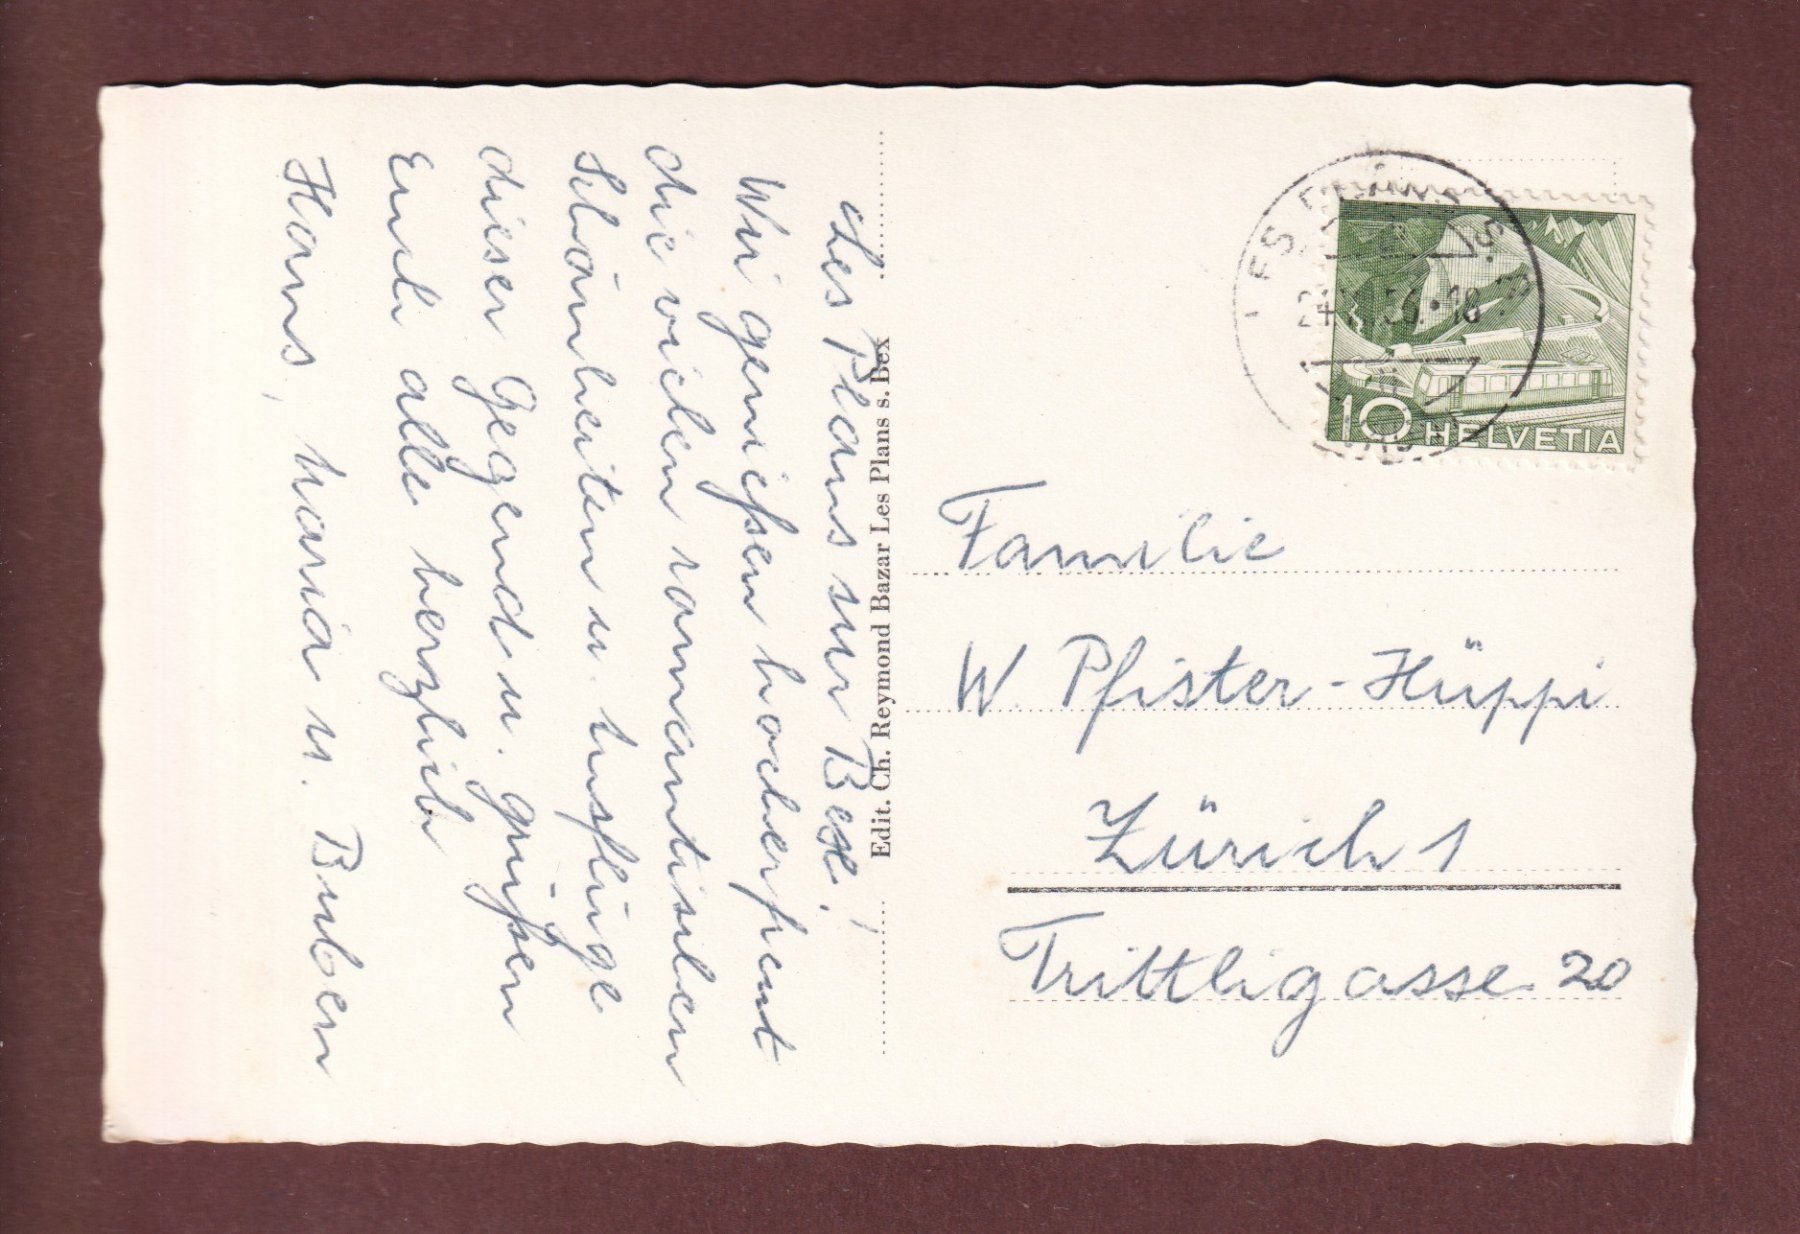 Les Plans sur Bex!
Wir geniessen hocherfreut
die vielen romantischen
Schönheiten u. Ausflüge
dieser Gegend u. grüßen
Euch alle herzlich
Hans, Maria u. Buben
Edit. Ch. Reymond Bazar Les Plans s. Bex
LES PLANS S. B
24. 56.-18
10 HELVETIA
Familie
W. Pfister-Hüppi
Zürich 1
Trittligasse 20